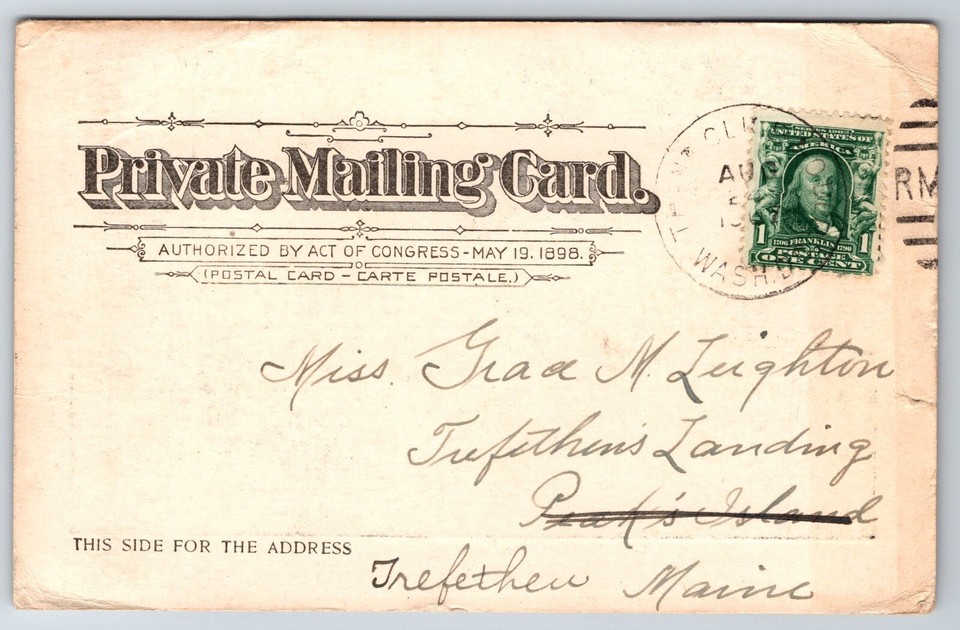 Private Mailing Card.
AUTHORIZED BY ACT OF CONGRESS-MAY 19. 1898.
OR
(POSTAL CARD - CARTE POSTALE.)
WASH.
RM
SERIES 1902
UNITED STATES OF
AMERICA
1 1
1706 FRANKLIN 1790
POSTAGE
ONE CENT
Miss. Grace M. Leighton
Trefethen's Landing
Peak's Island
THIS SIDE FOR THE ADDRESS
Trefethen Maine